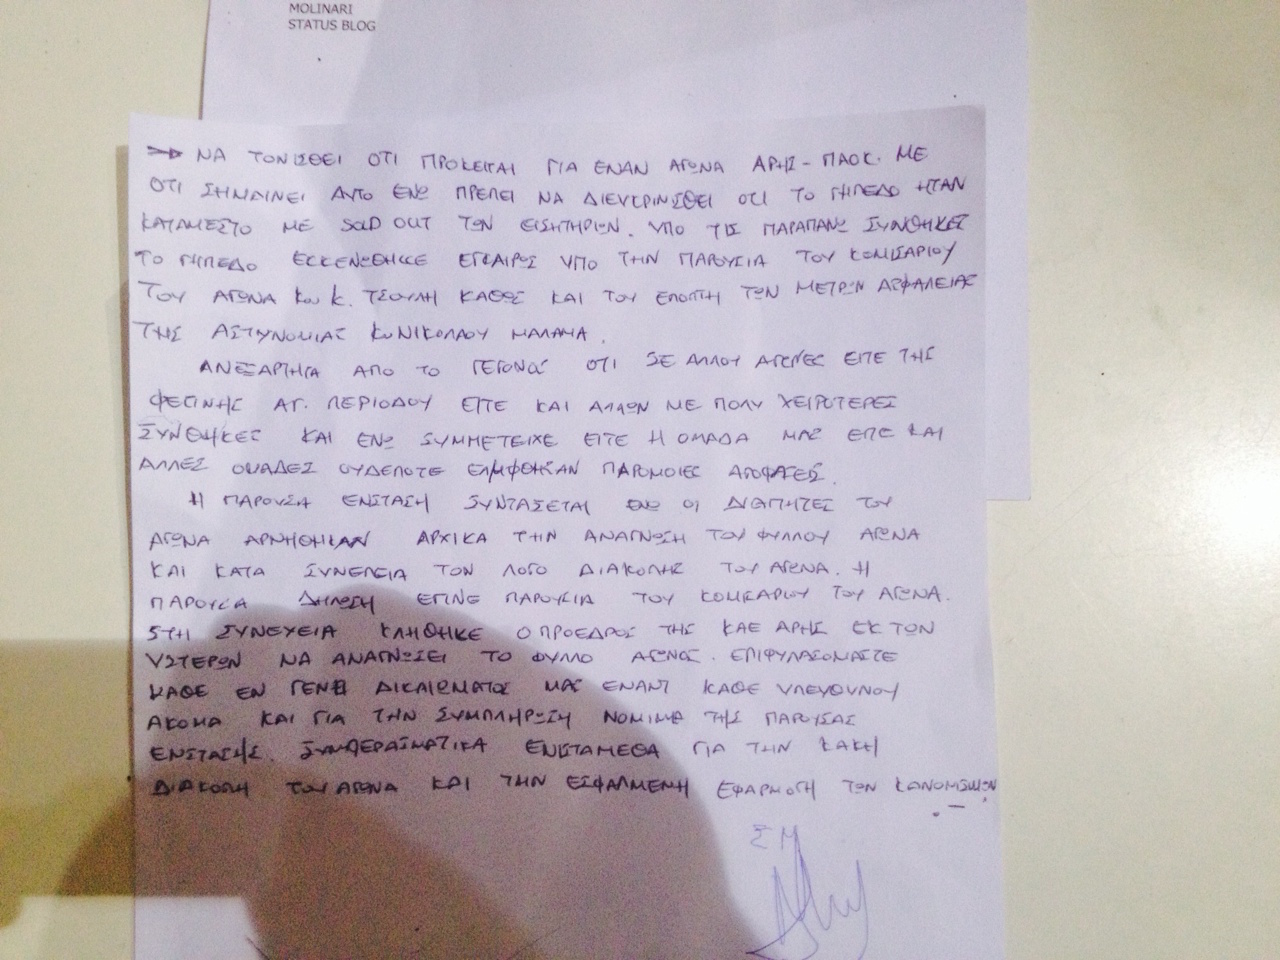 MOLINARI
STATUS BLOG
ΝΑ ΤΟΝΙΣΘΕΙ ΟΤΙ ΠΡΟΚΕΙΤΑΙ ΓΙΑ ΕΝΑΝ ΑΓΩΝΑ ΑΡΗΣ - ΠΑΟΚ. ΜΕ
ΟΤΙ ΣΗΜΑΙΝΕΙ ΑΥΤΟ ΕΝΩ ΠΡΕΠΕΙ ΝΑ ΔΙΕΥΚΡΙΝΙΣΘΕΙ ΟΤΙ ΤΟ ΓΗΠΕΔΟ ΗΤΑΝ
ΚΑΤΑΜΕΣΤΟ ΜΕ SOLD OUT ΤΩΝ ΕΙΣΗΤΗΡΙΩΝ. ΥΠΟ ΤΙΣ ΠΑΡΑΠΑΝΩ ΣΥΝΘΗΚΕΣ
ΤΟ ΓΗΠΕΔΟ ΕΚΚΕΝΩΘΗΚΕ ΕΓΚΑΙΡΩΣ ΥΠΟ ΤΗΝ ΠΑΡΟΥΣΙΑ ΤΟΥ ΚΟΜΙΣΑΡΙΟΥ
ΤΟΥ ΑΓΩΝΑ Κου Κ. ΤΣΟΥΛΗ ΚΑΘΩΣ ΚΑΙ ΤΟΥ ΕΠΟΠΤΗ ΤΩΝ ΜΕΤΡΩΝ ΑΣΦΑΛΕΙΑΣ
ΤΗΣ ΑΣΤΥΝΟΜΙΑΣ Κου ΝΙΚΟΛΑΟΥ ΜΑΛΑΜΑ.
ΑΝΕΞΑΡΤΗΤΑ ΑΠΟ ΤΟ ΓΕΓΟΝΟΣ ΟΤΙ ΣΕ ΑΛΛΟΥ ΑΓΩΝΕΣ ΕΙΤΕ ΤΗΣ
ΦΕΤΙΝΗΣ ΑΓ. ΠΕΡΙΟΔΟΥ ΕΙΤΕ ΚΑΙ ΑΛΛΩΝ ΜΕ ΠΟΛΥ ΧΕΙΡΟΤΕΡΕΣ
ΣΥΝΘΗΚΕΣ ΚΑΙ ΕΝΩ ΣΥΜΜΕΤΕΙΧΕ ΕΙΤΕ Η ΟΜΑΔΑ ΜΑΣ ΕΙΤΕ ΚΑΙ
ΑΛΛΕΣ ΟΜΑΔΕΣ ΟΥΔΕΠΟΤΕ ΕΛΗΦΘΗΣΑΝ ΠΑΡΟΜΟΙΕΣ ΑΠΟΦΑΣΕΙΣ.
Η ΠΑΡΟΥΣΑ ΕΝΣΤΑΣΗ ΣΥΝΤΑΣΕΤΑΙ ΕΝΩ ΟΙ ΔΙΑΙΤΗΤΕΣ ΤΟΥ
ΑΓΩΝΑ ΑΡΝΗΘΗΚΑΝ ΑΡΧΙΚΑ ΤΗΝ ΑΝΑΓΝΩΣΗ ΤΟΥ ΦΥΛΛΟΥ ΑΓΩΝΑ
ΚΑΙ ΚΑΤΑ ΣΥΝΕΠΕΙΑ ΤΟΝ ΛΟΓΟ ΔΙΑΚΟΠΗΣ ΤΟΥ ΑΓΩΝΑ. Η
ΠΑΡΟΥΣΑ ΔΗΛΩΣΗ ΕΓΙΝΕ ΠΑΡΟΥΣΙΑ ΤΟΥ ΚΟΜΙΣΑΡΙΟΥ ΤΟΥ ΑΓΩΝΑ.
ΣΤΗ ΣΥΝΕΧΕΙΑ ΚΛΗΘΗΚΕ Ο ΠΡΟΕΔΡΟΣ ΤΗΣ ΚΑΕ ΑΡΗΣ ΕΚ ΤΩΝ
ΥΣΤΕΡΩΝ ΝΑ ΑΝΑΓΝΩΣΕΙ ΤΟ ΦΥΛΛΟ ΑΓΩΝΟΣ. ΕΠΙΦΥΛΑΣΟΜΑΣΤΕ
ΚΑΘΕ ΕΝ ΓΕΝΕΙ ΔΙΚΑΙΩΜΑΤΟΣ ΜΑΣ ΕΝΑΝΤ ΚΑΘΕ ΥΠΕΥΘΥΝΟΥ
ΑΚΟΜΑ ΚΑΙ ΓΙΑ ΤΗΝ ΣΥΜΠΛΗΡΩΣΗ ΝΟΜΙΜΑ ΤΗΣ ΠΑΡΟΥΣΑΣ
ΕΝΣΤΑΣΗΣ. ΣΥΜΠΕΡΑΣΜΑΤΙΚΑ ΕΝΙΣΤΑΜΕΘΑ ΓΙΑ ΤΗΝ ΚΑΚΗ
ΔΙΑΚΟΠΗ ΤΟΥ ΑΓΩΝΑ ΚΑΙ ΤΗΝ ΕΣΦΑΛΜΕΝΗ ΕΦΑΡΜΟΓΗ ΤΩΝ ΚΑΝΟΝΙΣΜΩΝ
Σ Μ